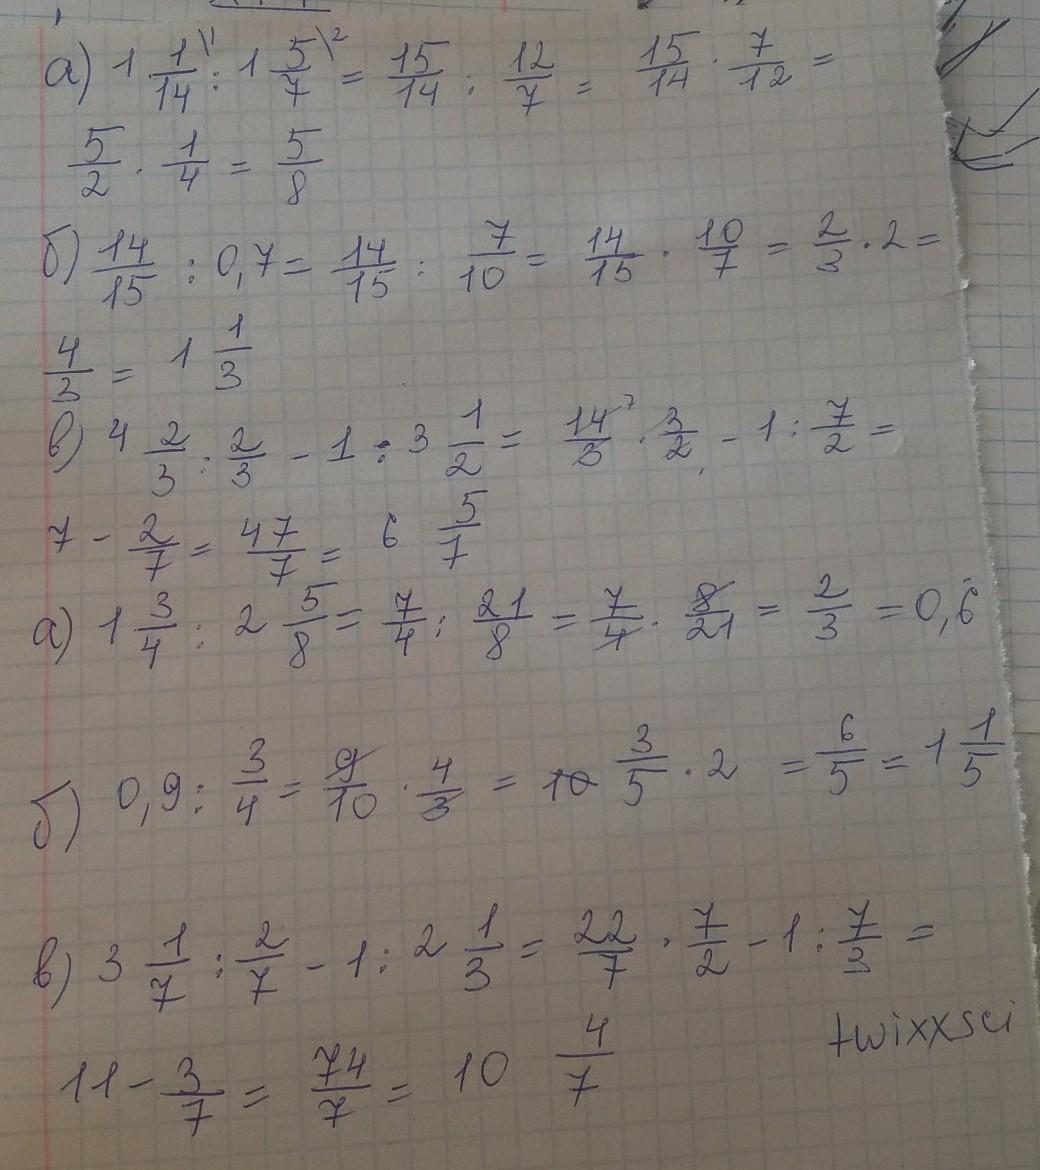 а) 1 1/14 \1 : 1 5/7 \2 = 15/14 : 12/7 = 15/14 · 7/12 =
5/2 · 1/4 = 5/8
б) 14/15 : 0,7 = 14/15 : 7/10 = 14/15 · 10/7 = 2/3 · 2 =
4/3 = 1 1/3
в) 4 2/3 : 2/3 - 1 : 3 1/2 = 14/3 7 · 3/2 - 1 : 7/2 =
7 - 2/7 = 47/7 = 6 5/7
а) 1 3/4 : 2 5/8 = 7/4 : 21/8 = 7/4 · 8/21 = 2/3 = 0,6
б) 0,9 : 3/4 = 9/10 · 4/3 = 3/5 · 2 = 6/5 = 1 1/5
в) 3 1/7 : 2/7 - 1 : 2 1/3 = 22/7 · 7/2 - 1 : 7/3 =
twixxsci
11 - 3/7 = 74/7 = 10 4/7